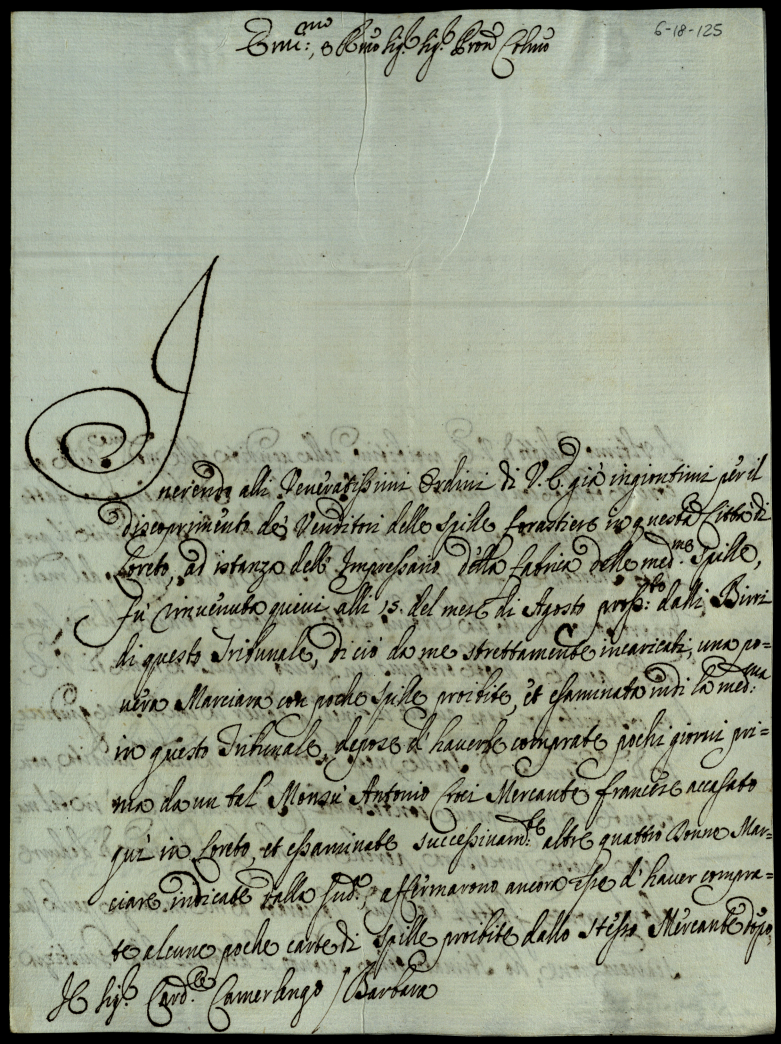 6-18-125
Emin:mo, e Rmo Sig.r Sig.r Pron Colmo
Inerendo alli Veneratissimi Ordini di V. E. già ingiontimi per il
discoprimento de' Venditori delle Spille forastiere in questa Città di
Loreto, ad istanza dell' Impressario della fabrica delle med:me Spille,
fù rinvenuta quivi alli 15. del mese di Agosto pross:to dalli Birri
di questo Tribunale, di ciò da me strettamente incaricati, una po=
vera Marciara con poche spille proibite, et esaminata indi la med:ma
in questo Tribunale, depose d' haverle comprate pochi giorni pri=
ma da un tal' Monsù Antonio Croci Mercante francese accasato
quì in Loreto, et essaminate successivam:te altre quattro Donne Mar=
ciare indicate dalla sud:a, affermarono ancora esse d' haver compra=
te alcune poche carte di Spille proibite dallo stesso Mercante dopo,
Sig.r Card.le Camerlengo / Barbara